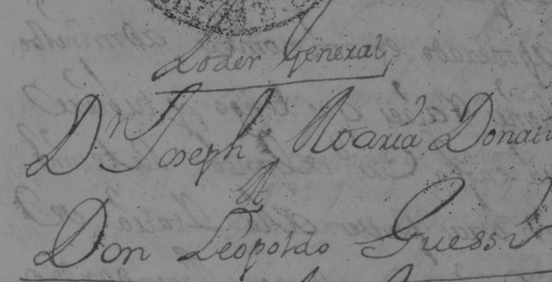 Poder General
Dn Joseph Maria Donati
A
Don Leopoldo Guessi